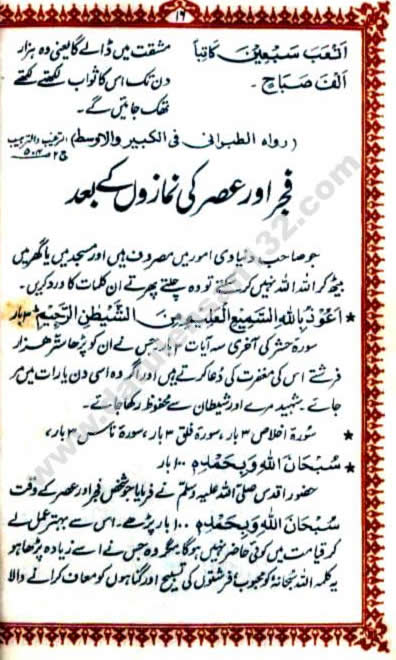 ۱۶
اَتْعَبَ سَبْعِيْنَ كَاتِبًا
اَلْفَ صَبَاحٍ ۔
مشقت میں ڈالے گا یعنی وہ ہزار
دن تک اس کا ثواب لکھتے لکھتے
تھک جائیں گے۔
(رواه الطبرانی فی الکبیر والاوسط) الترغیب والترہیب
ج۲ ص۵۰۴
فجر اور عصر کی نمازوں کے بعد
جو صاحب دنیاوی امور میں مصروف ہیں اور مسجد میں یا گھر میں
بیٹھ کر اللہ اللہ نہیں کر سکتے تو وہ چلتے پھرتے ان کلمات کا ورد کریں۔
★ اَعُوْذُ بِاللّٰهِ السَّمِيْعِ الْعَلِيْمِ مِنَ الشَّيْطٰنِ الرَّجِيْمِ ۳ بار
سورۃ حشر کی آخری سہ آیات ۳ بار، جس نے ان کو پڑھا ستر ہزار
فرشتے اس کی مغفرت کی دعا کرتے ہیں اور اگر وہ اسی دن یا رات میں مر
جائے۔ شہید مرے اور شیطان سے محفوظ رکھا جائے۔
★ سورۃ اخلاص ۳ بار، سورۃ فلق ۳ بار، سورۃ ناس ۳ بار،
★ سُبْحَانَ اللّٰهِ وَبِحَمْدِهٖ ۱۰۰ بار
حضور اقدس صلی اللہ علیہ وسلم نے فرمایا جو شخص فجر اور عصر کے وقت
سُبْحَانَ اللّٰهِ وَبِحَمْدِهٖ ۱۰۰ بار پڑھے۔ اس سے بہتر عمل لے
کر قیامت میں کوئی حاضر نہیں ہوگا مگر وہ جس نے اسے زیادہ پڑھا ہو
یہ کلمہ اللہ سبحانہ کو محبوب، فرشتوں کی تسبیح اور گناہوں کو معاف کرانے والا